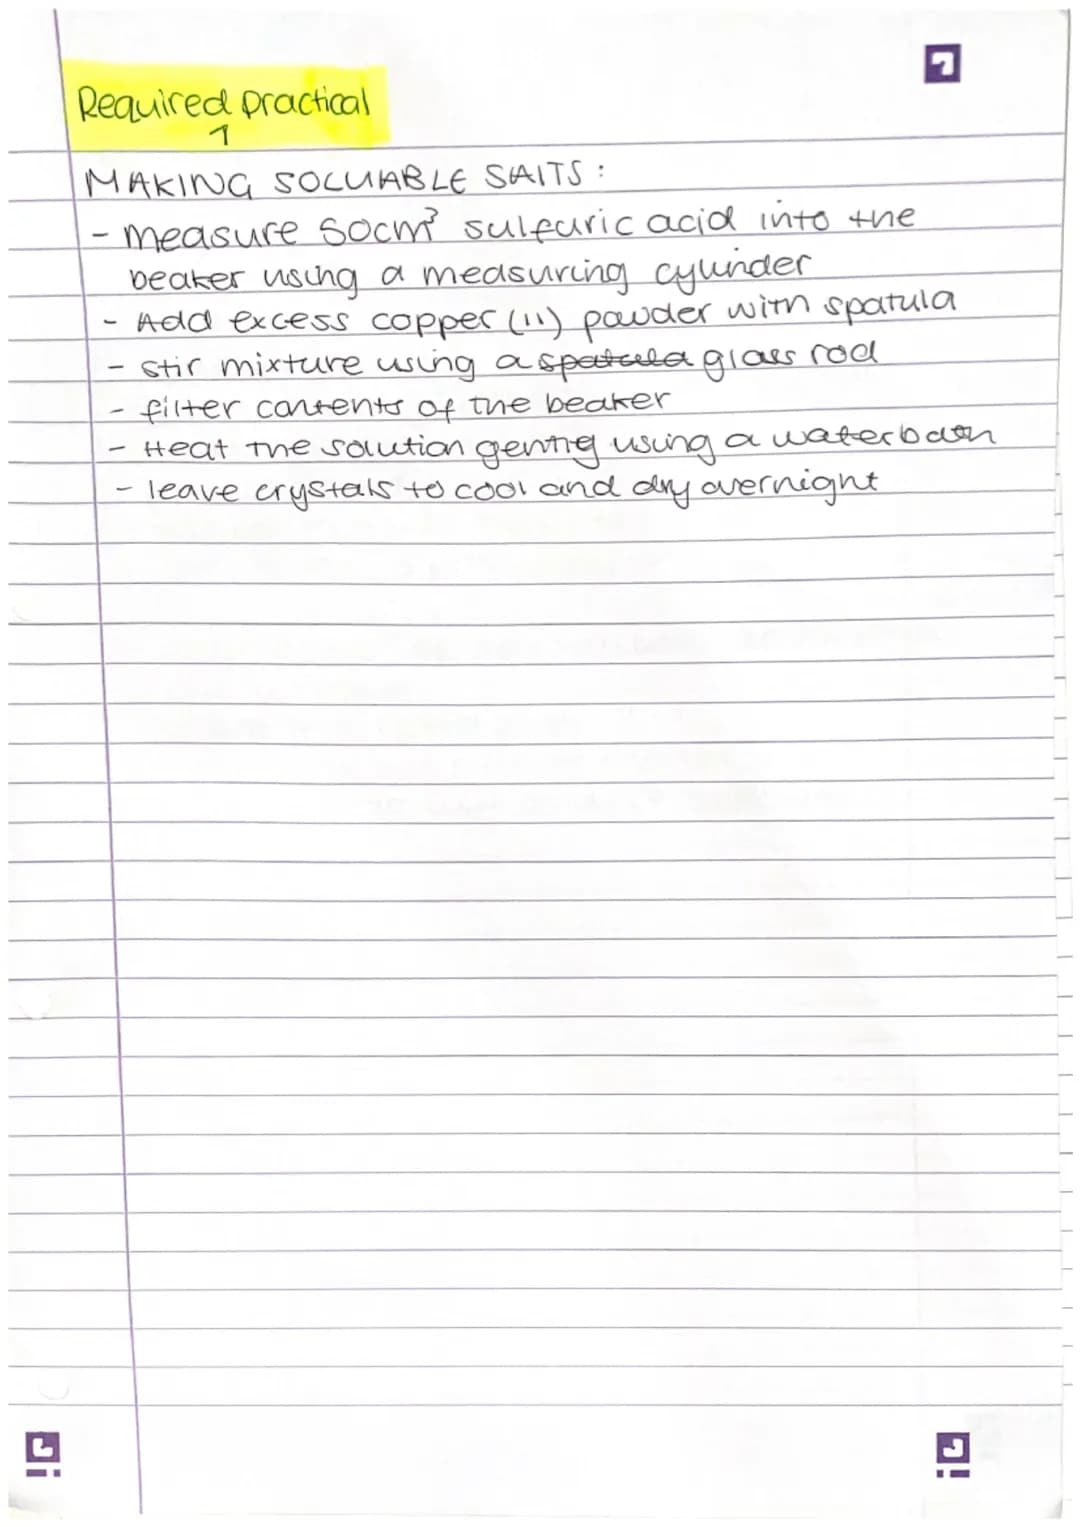 Required practical
1
MAKING SOLUABLE SALTS:
- measure 50cm³ sulfuric acid into the
beaker using a measuring cylinder
- Add excess copper (II) powder with spatula
- stir mixture using a spatula glass rod
- filter contents of the beaker
- Heat the solution gently using a waterbath
- leave crystals to cool and dry overnight